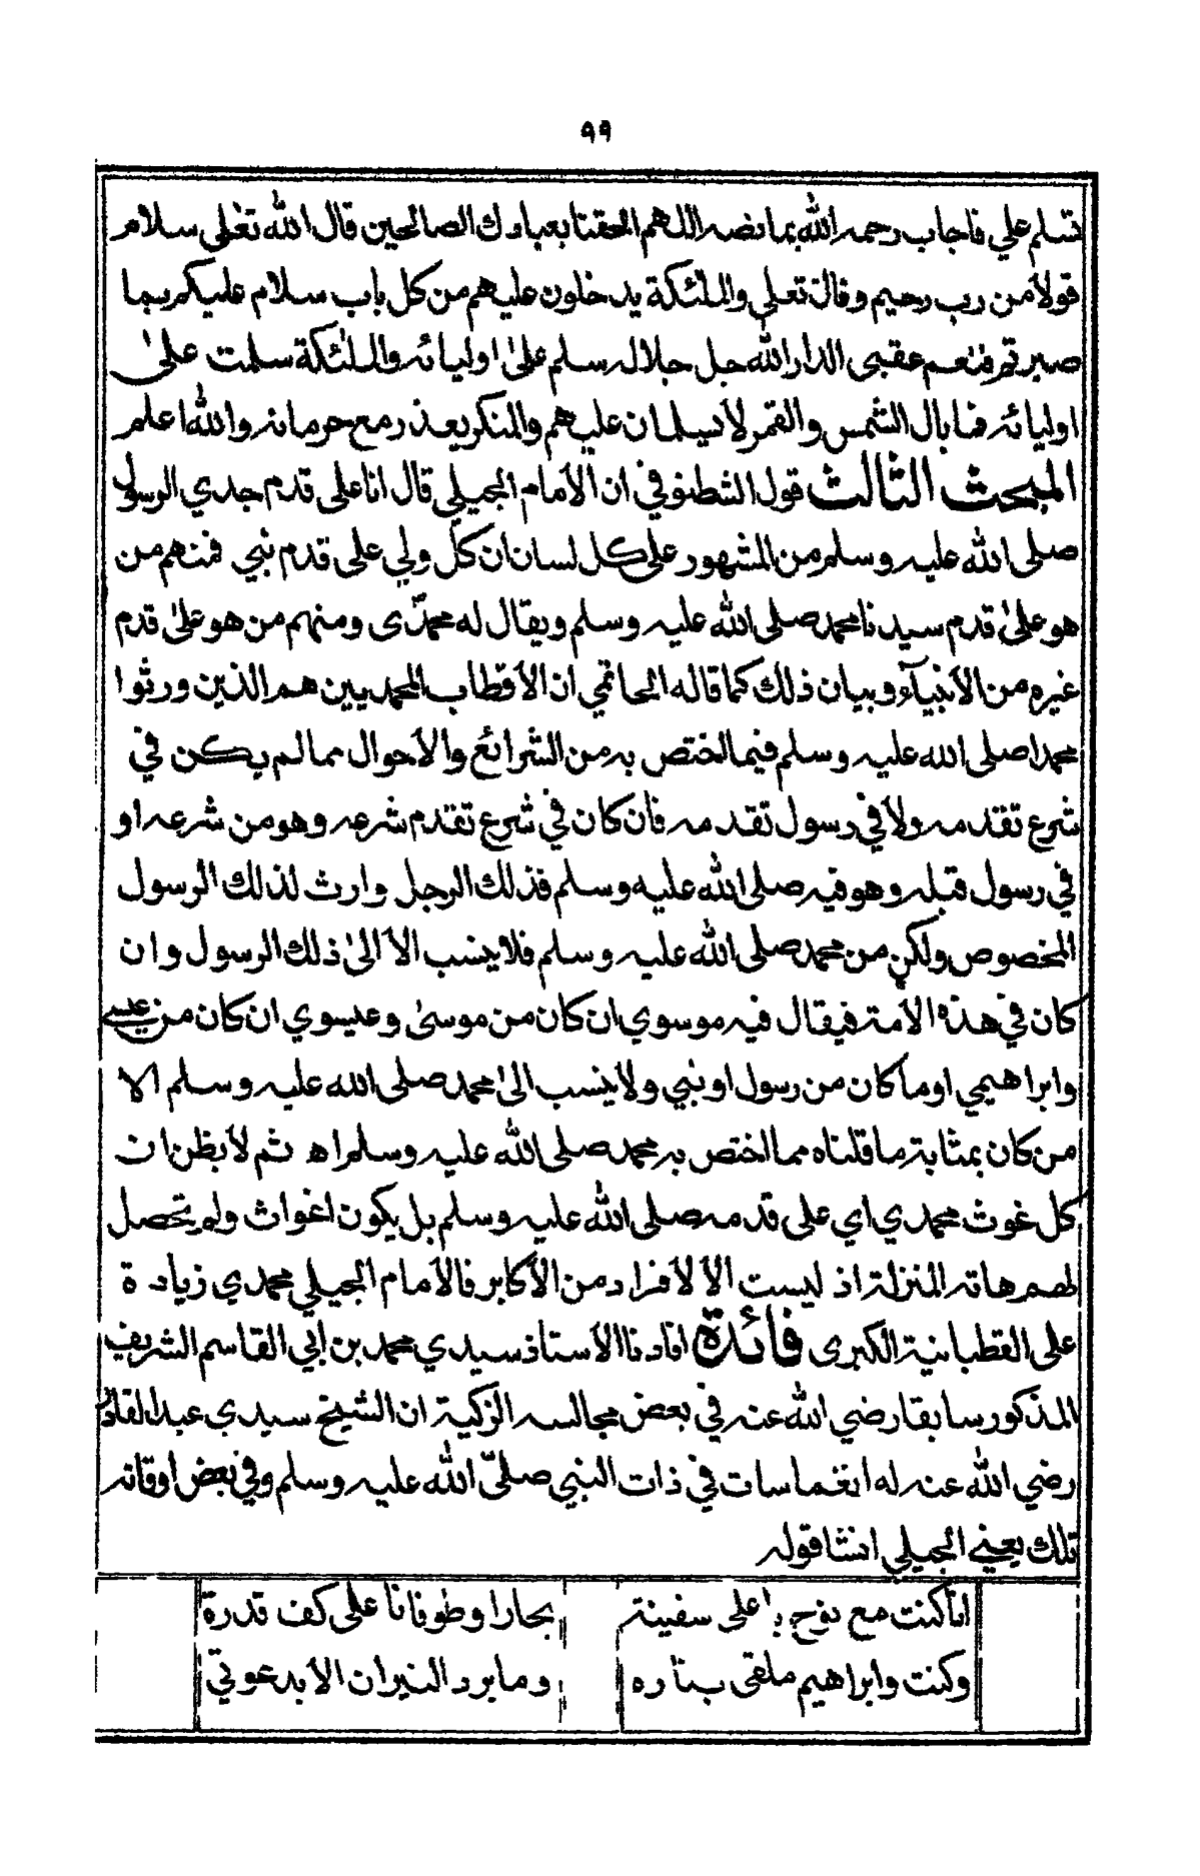 ٩٩
تسلم علي فاجاب رحمه الله بما نصه اللهم الحقنا بعبادك الصالحين قال الله تعلى سلام
قولا من رب رحيم وقال تعلى والملئكة يدخلون عليهم من كل باب سلام عليكم بما
صبرتم فنعم عقبى الدار الله جل جلاله سلم على اوليائه والملئكة سلمت على
اوليائه فما بال الشمس والقمر لا يسلمان عليهم والمنكر يعذر مع حرمانه والله اعلم
المبحث الثالث قول الشطنوفي ان الامام الجيلي قال انا على قدم جدي الرسول
صلى الله عليه وسلم من المشهور على كل لسان ان كل ولي على قدم نبي فمنهم من
هو على قدم سيدنا محمد صلى الله عليه وسلم ويقال له محمّدى ومنهم من هو على قدم
غيره من الانبيآء وبيان ذلك كما قاله الحاتمي ان الاقطاب المحمديين هم الذين ورثوا
محمدا صلى الله عليه وسلم فيما اختص به من الشرائع والاحوال مما لم يكن في
شرع تقدمه ولا في رسول تقدمه فان كان في شرع تقدم شرعه وهو من شرعه او
في رسول قبله وهو فيه صلى الله عليه وسلم فذلك الرجل وارث لذلك الرسول
المخصوص ولكن من محمد صلى الله عليه وسلم فلا ينسب الا الى ذلك الرسول وان
كان في هذه الامة فيقال فيه موسوي ان كان من موسى وعيسوي ان كان من عيسى
وابراهيمي او ما كان من رسول او نبي ولا ينسب الى محمد صلى الله عليه وسلم الا
من كان بمثابة ما قلناه مما اختص به محمد صلى الله عليه وسلم اه ثم لا يظن ان
كل غوث محمدي اي على قدمه صلى الله عليه وسلم بل يكون اغواث ولم يتحصل
لهم هاته المنزلة اذ ليست الا لافراد من الاكابر فالامام الجيلي محمدي زيادة
على القطبانية الكبرى فائدة افادنا الاستاذ سيدي محمد بن ابي القاسم الشريف
المذكور سابقا رضي الله عنه في بعض مجالسه الزكية ان الشيخ سيدي عبد القادر
رضي الله عنه له انغماسات في ذات النبي صلىّ الله عليه وسلم وفي بعض اوقاته
تلك يعني الجيلي انشا قوله
انا كنت مع نوح باعلى سفينة بحارا وطوفانا على كف قدرة
وكنت وابراهيم ملقى بناره وما برد النيران الا بدعوتي